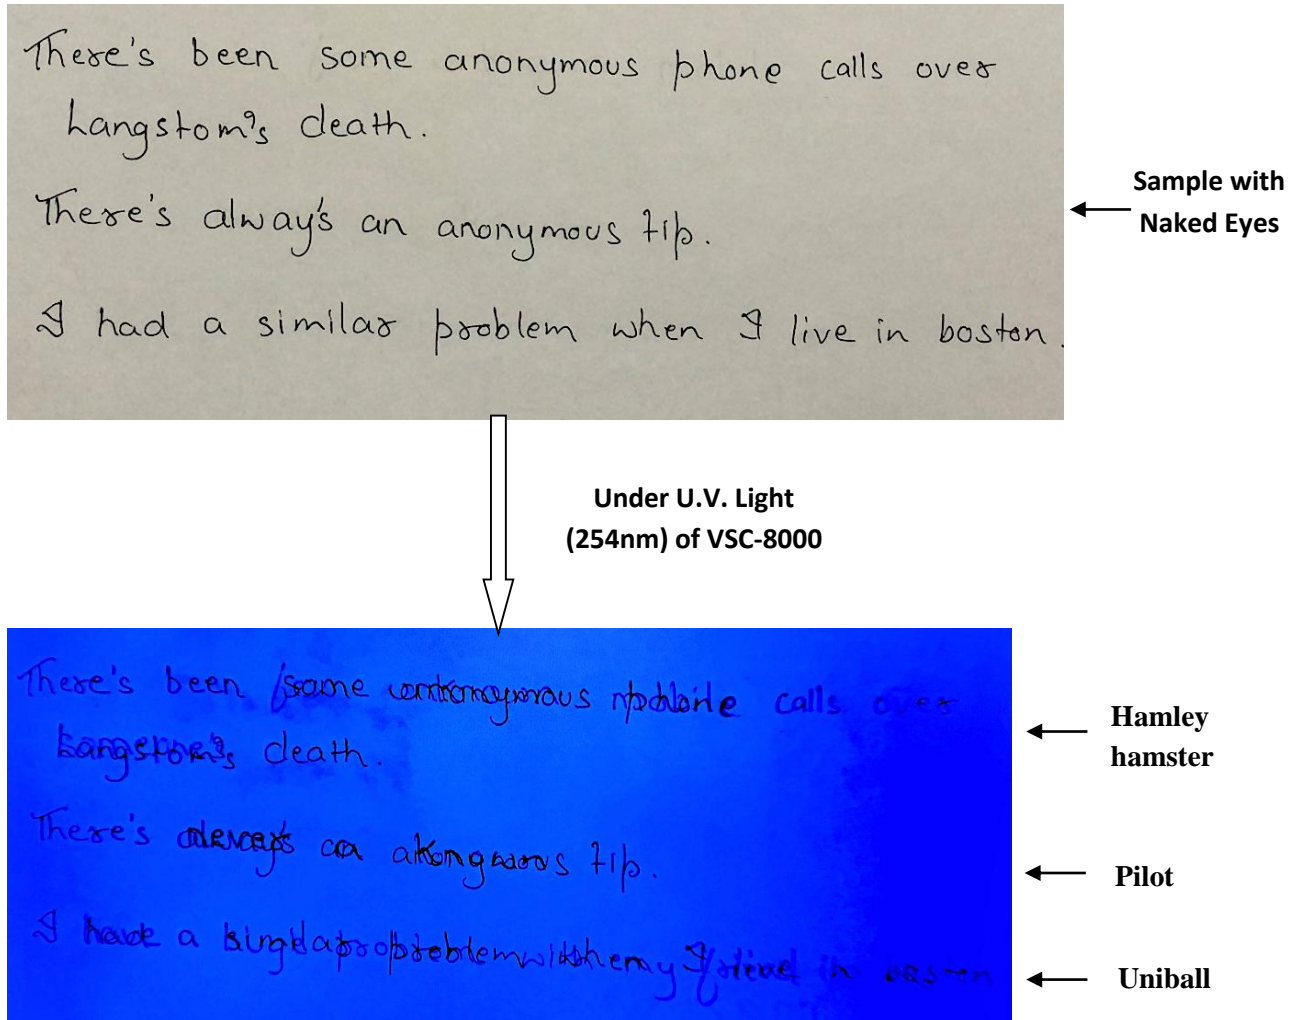 There's been some anonymous phone calls over
Langstom's death.
There's always an anonymous tip.
I had a similar problem when I live in boston.
Sample with
Naked Eyes
Under U.V. Light
(254nm) of VSC-8000
There's been calls over
death.
Hamley
hamster
There's tip.
Pilot
I a
Uniball